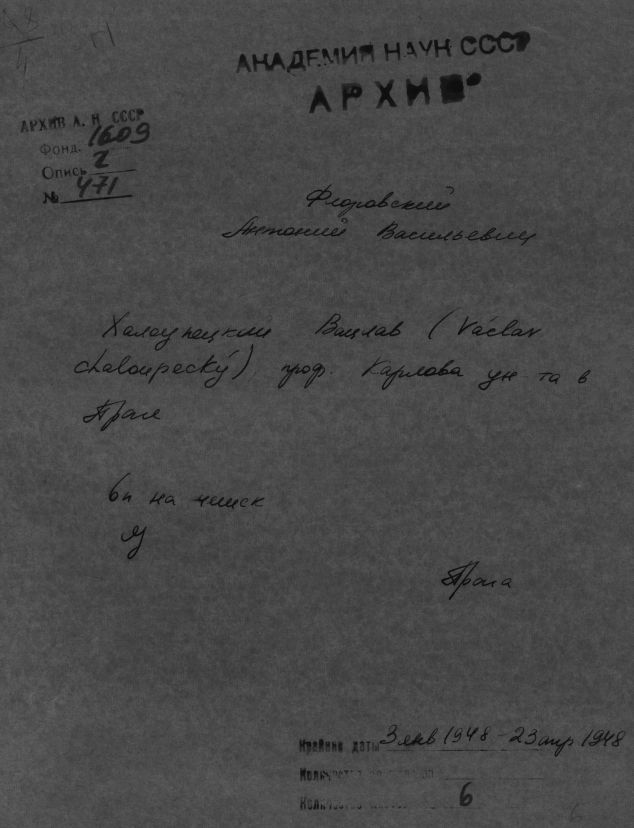 АКАДЕМИЯ НАУК СССР
АРХИВ
АРХИВ А. Н. СССР
Фонд. 1609
Опись 2
№ 471
Флоровский
Антоний Васильевич
Халоупецкий Вацлав (Václav
Chaloupecký), проф. Карлова ун-та в
Праге
6п на чешск
яз
Прага
Крайние даты 3 янв 1948 - 23 апр 1948
Количество
Количество 6
6